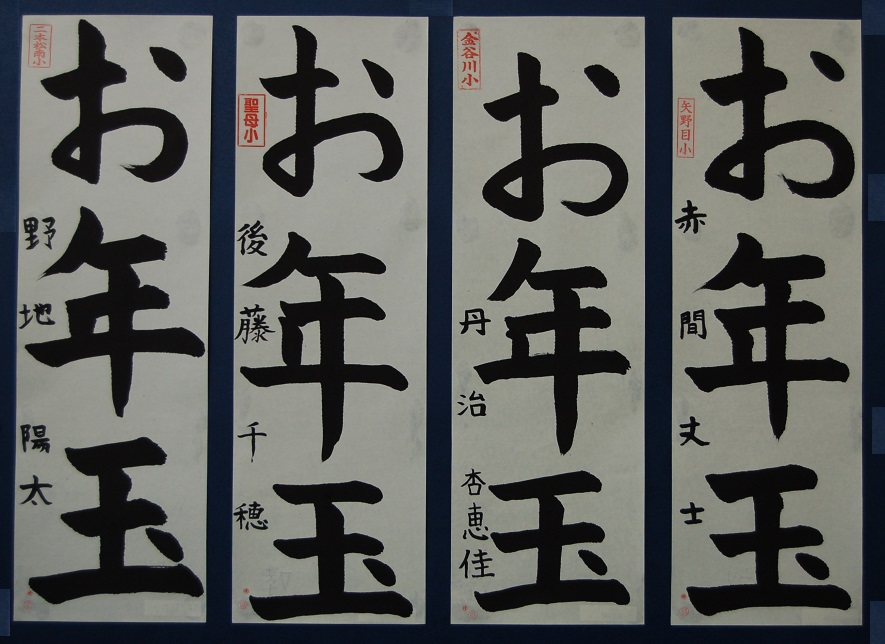 矢野目小
お年玉
赤間丈士
金谷川小
お年玉
丹治杏恵佳
聖母小
お年玉
後藤千穂
二本松南小
お年玉
野地陽太